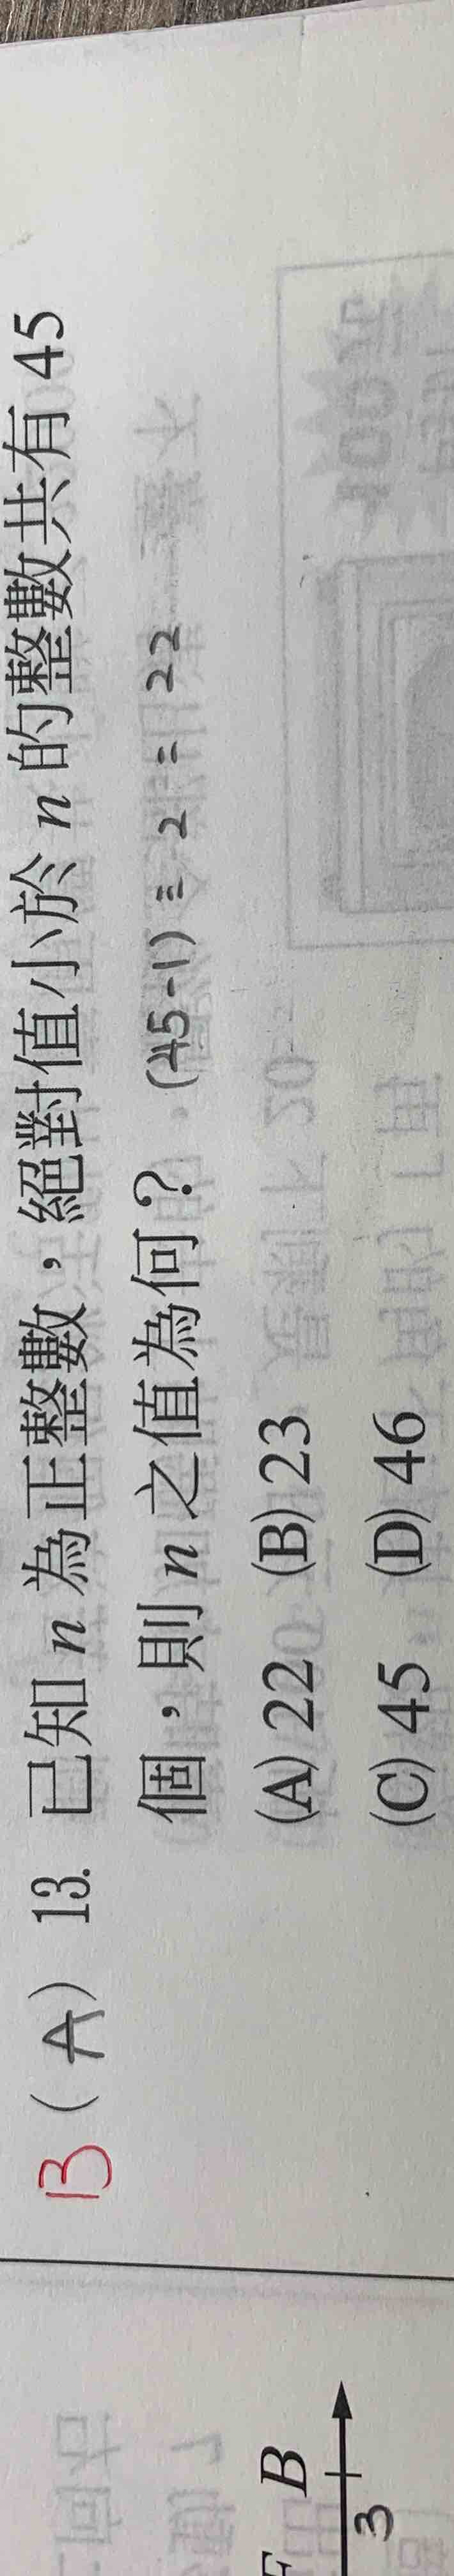 B ( A ) 13. 已知 n 為正整數，絕對值小於 n 的整數共有 45
個，則 n 之值為何？ (45-1) ÷ 2 = 22
(A) 22 (B) 23
(C) 45 (D) 46
B
3